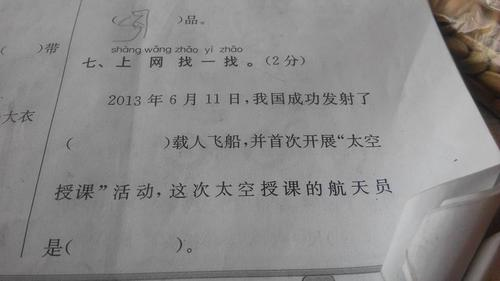 (     )品。
(   )带
shàng wǎng zhǎo yì zhǎo
七、上 网 找 一 找 。(2分)
大衣
2013 年 6 月 11 日,我国成功发射了
(          )载人飞船,并首次开展“太空
授课”活动,这次太空授课的航天员
是(          )。